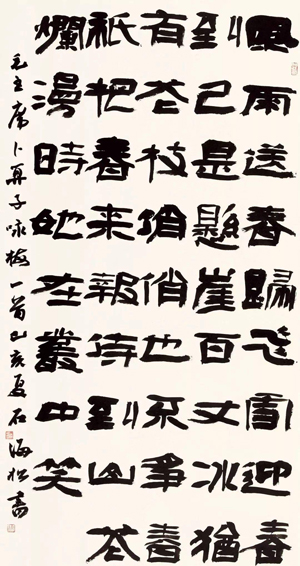 風雨送春歸飞雪迎春
到已是懸崖百丈冰猶
有花枝俏俏也不爭春
祇把春来報待到山花
爛漫時她在叢中笑
毛主席卜算子咏梅一首己亥夏石海松書